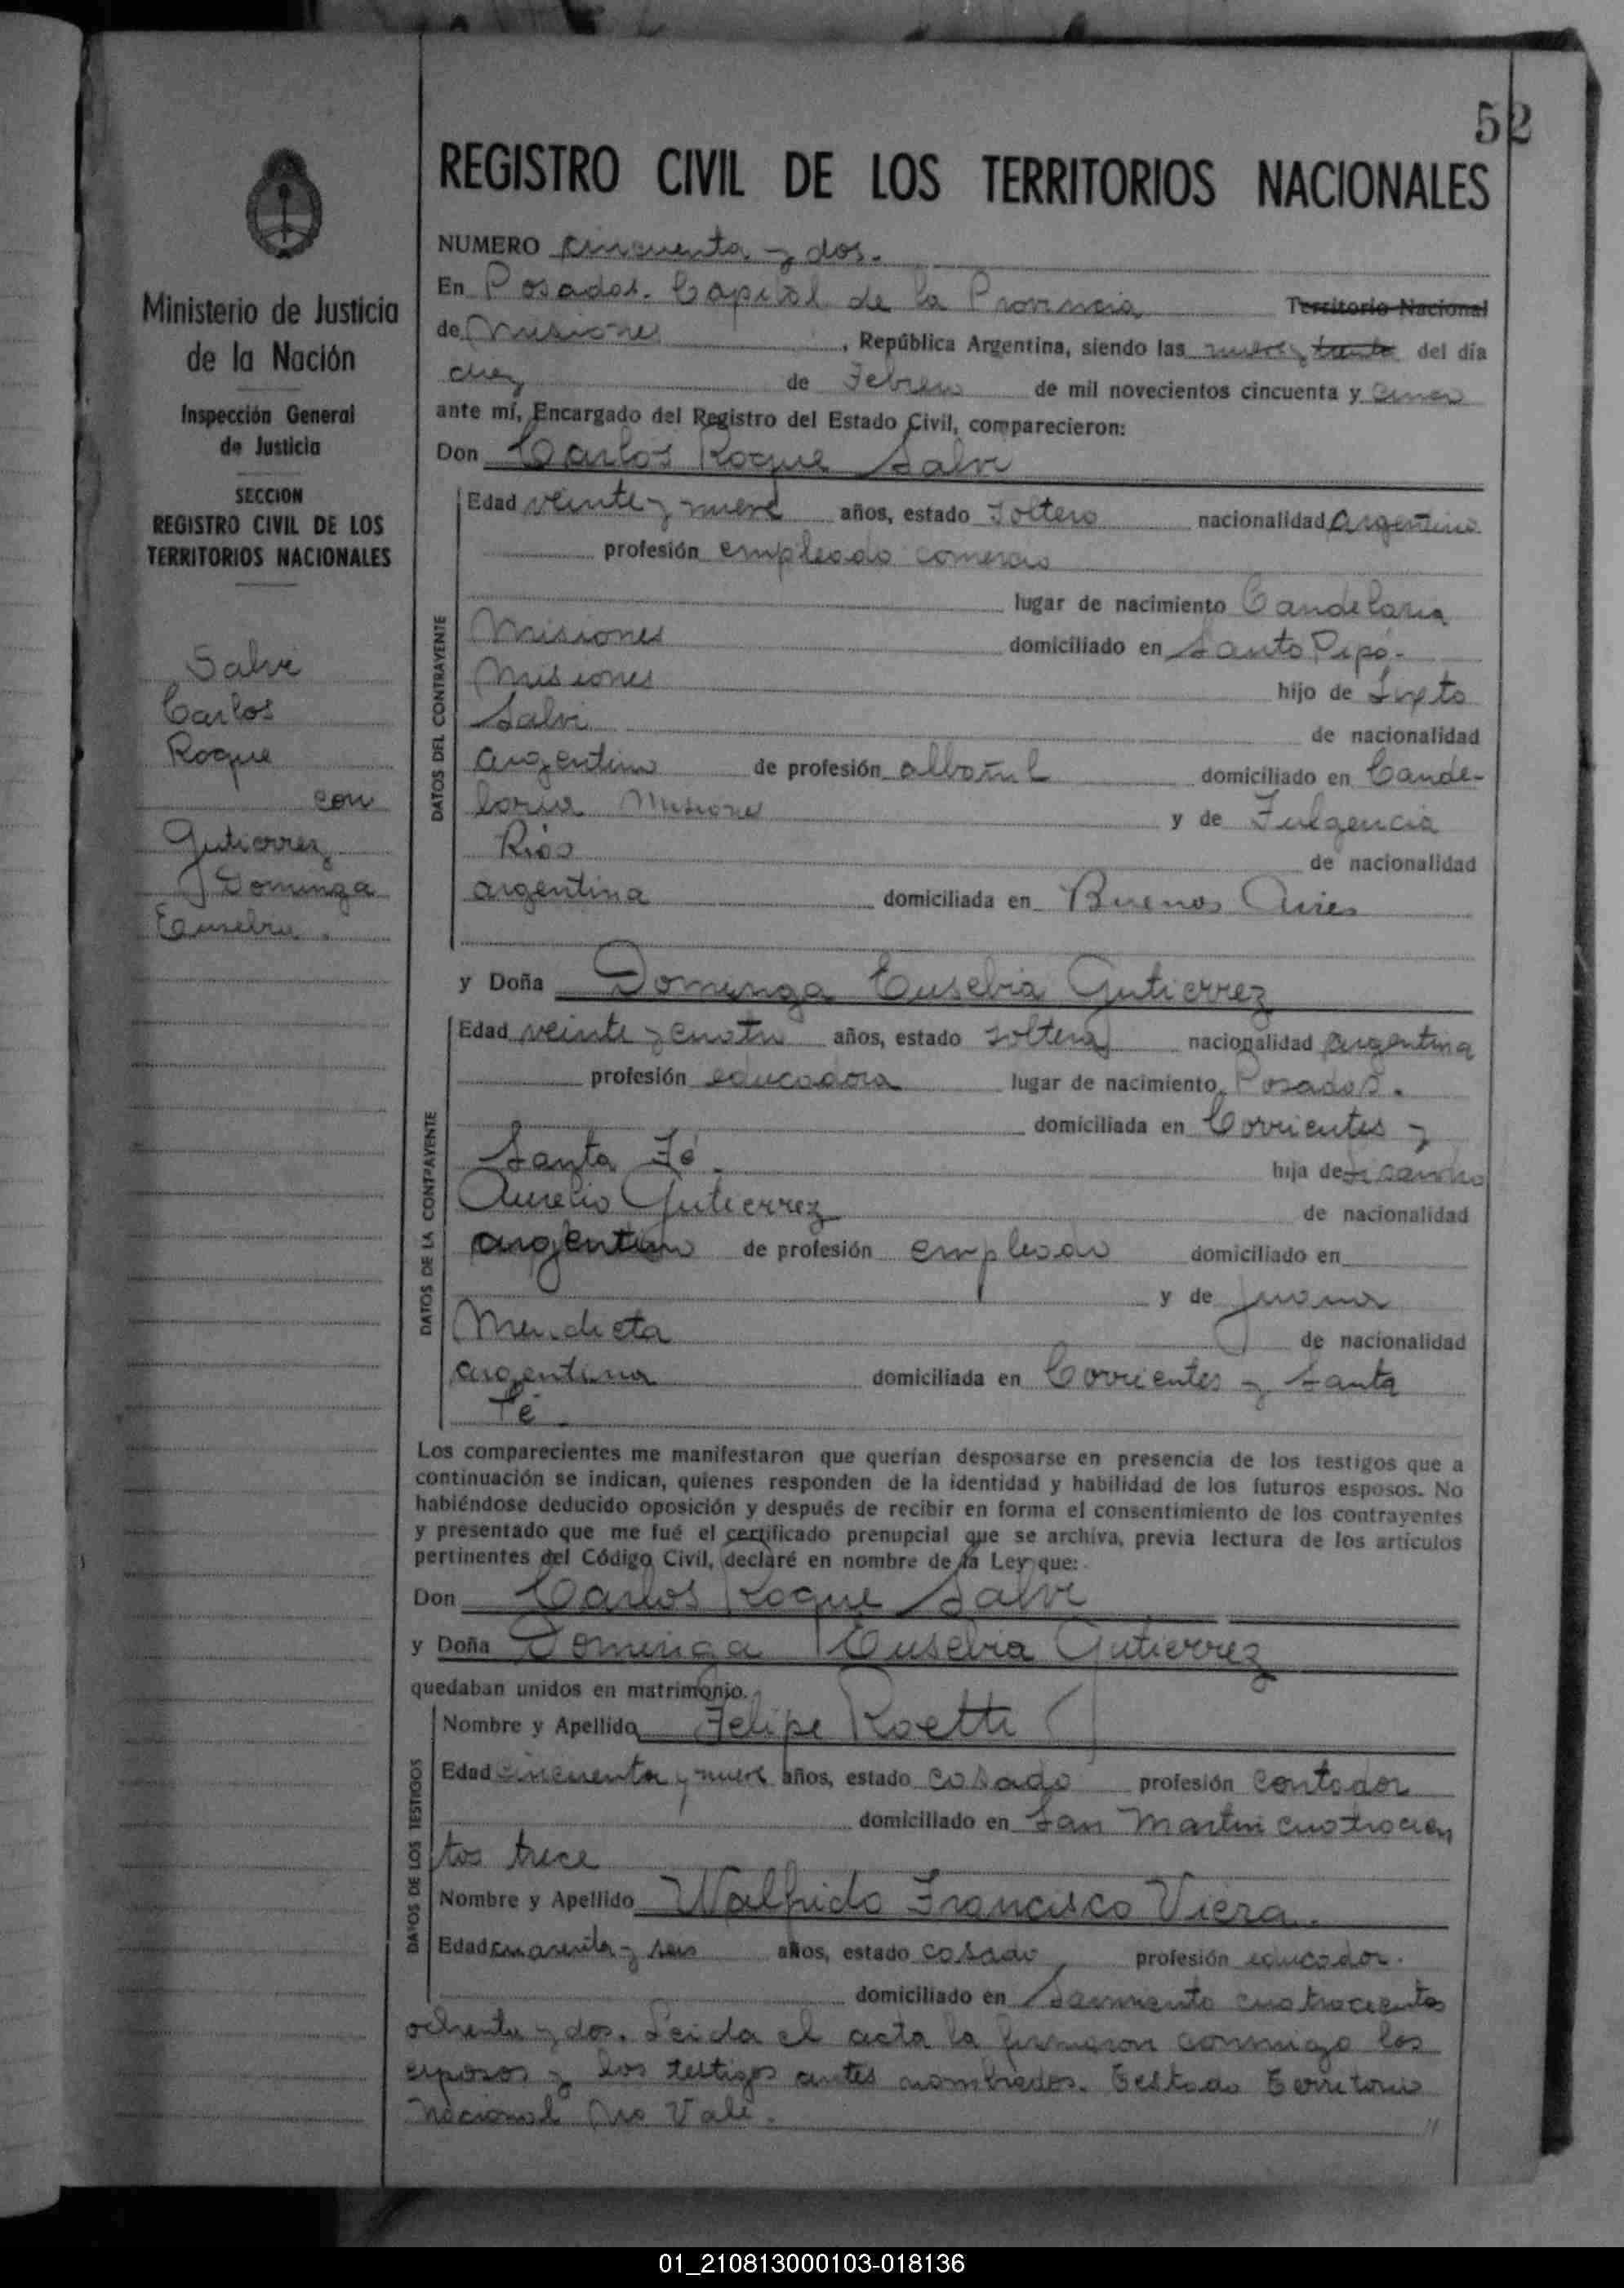 52
REGISTRO CIVIL DE LOS TERRITORIOS NACIONALES
Ministerio de Justicia
de la Nación
Inspección General
de Justicia
SECCION
REGISTRO CIVIL DE LOS
TERRITORIOS NACIONALES
Salvi
Carlos
Roque
con
Gutierrez
Dominga
Eusebia.
NUMERO cincuenta y dos.
En Posadas. Capital de la Provincia Territorio Nacional
de Misiones, República Argentina, siendo las nueve y treinta del día
diez de Febrero de mil novecientos cincuenta y cinco
ante mí, Encargado del Registro del Estado Civil, comparecieron:
Don Carlos Roque Salvi
DATOS DEL CONTRAYENTE
Edad veinte y nueve años, estado soltero nacionalidad argentino
profesión empleado comercio
lugar de nacimiento Candelaria
Misiones domiciliado en Santo Pipó.
Misiones hijo de Sixto
Salvi de nacionalidad
argentino de profesión albañil domiciliado en Cande-
laria Misiones y de Fulgencia
Rios de nacionalidad
argentina domiciliada en Buenos Aires
y Doña Dominga Eusebia Gutierrez
DATOS DE LA CONTRAYENTE
Edad veinte y cuatro años, estado soltera nacionalidad argentina
profesión educadora lugar de nacimiento Posadas.
domiciliada en Corrientes y
Santa Fé. hija de
Aurelio Gutierrez de nacionalidad
argentino de profesión empleado domiciliado en
y de Juana
Mendieta de nacionalidad
argentina domiciliada en Corrientes y Santa
Fé.
Los comparecientes me manifestaron que querían desposarse en presencia de los testigos que a
continuación se indican, quienes responden de la identidad y habilidad de los futuros esposos. No
habiéndose deducido oposición y después de recibir en forma el consentimiento de los contrayentes
y presentado que me fué el certificado prenupcial que se archiva, previa lectura de los artículos
pertinentes del Código Civil, declaré en nombre de la Ley que:
Don Carlos Roque Salvi
y Doña Dominga Eusebia Gutierrez
quedaban unidos en matrimonio.
DATOS DE LOS TESTIGOS
Nombre y Apellido Felipe Roetti
Edad cincuenta y nueve años, estado casado profesión contador
domiciliado en San Martin cuatrocien
tos trece
Nombre y Apellido Walfrido Francisco Viera.
Edad cuarenta y seis años, estado casado profesión educador.
domiciliado en Sarmiento cuatrocientos
ochenta y dos. Leida el acta la firmaron conmigo los
esposos y los testigos antes nombrados. Testado Territorio
Nacional No Vale.
01_210813000103-018136